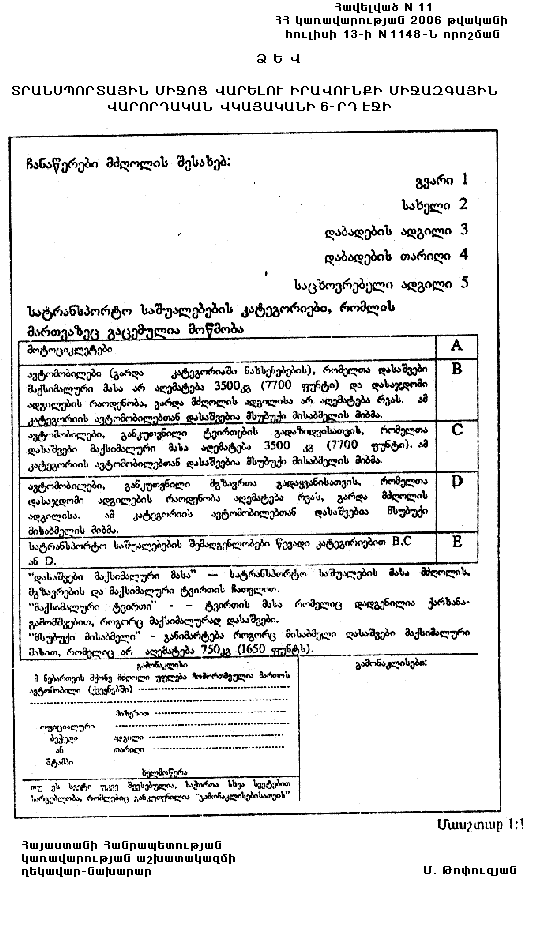 Հավելված N 11
ՀՀ կառավարության 2006 թվականի
հուլիսի 13-ի N 1148-Ն որոշման
Ձ Ե Վ
ՏՐԱՆՍՊՈՐՏԱՅԻՆ ՄԻՋՈՑ ՎԱՐԵԼՈՒ ԻՐԱՎՈՒՆՔԻ ՄԻՋԱԶԳԱՅԻՆ
ՎԱՐՈՐԴԱԿԱՆ ՎԿԱՅԱԿԱՆԻ 6-ՐԴ ԷՋԻ
ჩანაწერები მძღოლის შესახებ:
გვარი 1
სახელი 2
დაბადების ადგილი 3
დაბადების თარიღი 4
საცხოვრებელი ადგილი 5
სატრანსპორტო საშუალებების კატეგორიები, რომლის
მართვაზეც გაცემულია მოწმობა
მოტოციკლეტები A
ავტომობილები (გარდა კატეგორიაში ნახსენებების), რომელთა დასაშვები B
მაქსიმალური მასა არ აღემატება 3500კგ (7700 ფუნტი) და დასაჯდომი
ადგილების რაოდენობა, გარდა მძღოლის ადგილისა არ აღემატება რვას. ამ
კატეგორიის ავტომობილებთან დასაშვებია მსუბუქი მისაბმელის მიბმა.
ავტომობილები, განკუთვნილი ტვირთების გადაზიდვისათვის, რომელთა C
დასაშვები მაქსიმალური მასა აღემატება 3500 კგ (7700 ფუნტი). ამ
კატეგორიის ავტომობილებთან დასაშვებია მსუბუქი მისაბმელის მიბმა.
ავტომობილები, განკუთვნილი მგზავრთა გადაყვანისათვის, რომელთა D
დასაჯდომი ადგილების რაოდენობა აღემატება რვას, გარდა მძღოლის
ადგილისა. ამ კატეგორიის ავტომობილებთან დასაშვებია მსუბუქი
მისაბმელის მიბმა.
სატრანსპორტო საშუალებების შემადგენლობები წევადი კატეგორიებით B.C E
ან D.
"დასაშვები მაქსიმალური მასა" — სატრანსპორტო საშუალების მასა მძღოლის,
მგზავრების და მაქსიმალური ტვირთის ჩათვლით.
"მაქსიმალური ტვირთი" - – ტვირთის მასა რომელიც დადგენილია ქარხანა-
გამომშვებით, როგორც მაქსიმალურად დასაშვები.
"მსუბუქი მისაბმელი" - განიმარტება როგორც მისაბმელი დასაშვები მაქსიმალური
მასით, რომელიც არ აღემატება 750კგ (1650 ფუნტს).
გამონაკლისი გამონაკლისები:
ამ ნებართვის მქონე მძღოლი უფლება ჩამორთმეულია მართოს
ავტომობილი (ქვეყნებში)
მიზეზით
ოფიციალური
ბეჭედი ადგილი
ან თარიღი
შტამპი
ხელმოწერა
თუ ეს სვეტი უკვე შევსებულია, საჭიროა სხვა სვეტებით
სარგებლობა, რომლებიც განკუთვნილია "გამონაკლისებისათვის"
Մասշտաբ 1:1
Հայաստանի Հանրապետության
կառավարության աշխատակազմի
ղեկավար-նախարար Մ. Թոփուզյան